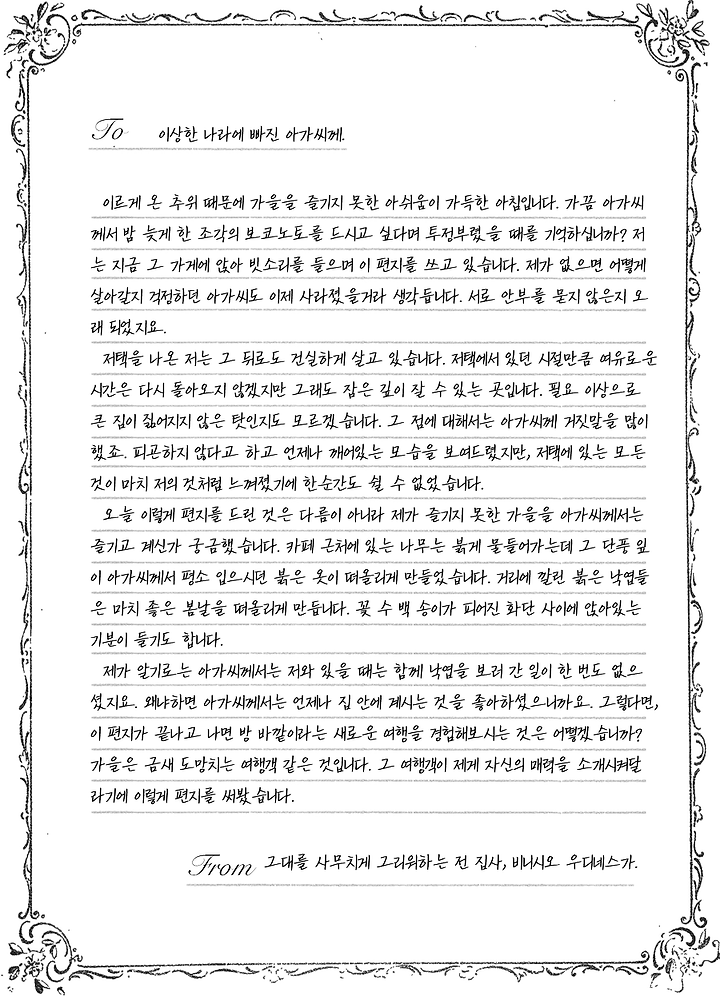 To 이상한 나라에 빠진 아가씨께.
이르게 온 추위 때문에 가을을 즐기지 못한 아쉬움이 가득한 아침입니다. 가끔 아가씨
께서 밤 늦게 한 조각의 보코노토를 드시고 싶다며 투정부렸을 때를 기억하십니까? 저
는 지금 그 가게에 앉아 빗소리를 들으며 이 편지를 쓰고 있습니다. 제가 없으면 어떻게
살아갈지 걱정하던 아가씨도 이제 사라졌을거라 생각듭니다. 서로 안부를 묻지 않은지 오
래 되었지요.
저택을 나온 저는 그 뒤로도 건실하게 살고 있습니다. 저택에서 있던 시절만큼 여유로운
시간은 다시 돌아오지 않겠지만 그래도 잡은 깊이 잘 수 있는 곳입니다. 필요 이상으로
큰 짐이 짊어지지 않은 탓인지도 모르겠습니다. 그 점에 대해서는 아가씨께 거짓말을 많이
했죠. 피곤하지 않다고 하고 언제나 깨어있는 모습을 보여드렸지만, 저택에 있는 모든
것이 마치 저의 것처럼 느껴졌기에 한순간도 쉴 수 없었습니다.
오늘 이렇게 편지를 드린 것은 다름이 아니라 제가 즐기지 못한 가을을 아가씨께서는
즐기고 계신가 궁금했습니다. 카페 근처에 있는 나무는 붉게 물들어가는데 그 단풍 잎
이 아가씨께서 평소 입으시던 붉은 옷이 떠올리게 만들었습니다. 거리에 깔린 붉은 낙엽들
은 마치 좋은 봄날을 떠올리게 만듭니다. 꽃 수 백 송이가 피어진 화단 사이에 앉아있는
기분이 들기도 합니다.
제가 알기로는 아가씨께서는 저와 있을 때는 함께 낙엽을 보러 간 일이 한 번도 없으
셨지요. 왜냐하면 아가씨께서는 언제나 집 안에 계시는 것을 좋아하셨으니까요. 그렇다면,
이 편지가 끝나고 나면 방 바깥이라는 새로운 여행을 경험해보시는 것은 어떻겠습니까?
가을은 금새 도망치는 여행객 같은 것입니다. 그 여행객이 제게 자신의 매력을 소개시켜달
라기에 이렇게 편지를 써봤습니다.
From 그대를 사무치게 그리워하는 전 집사, 비니시오 우디네스가.